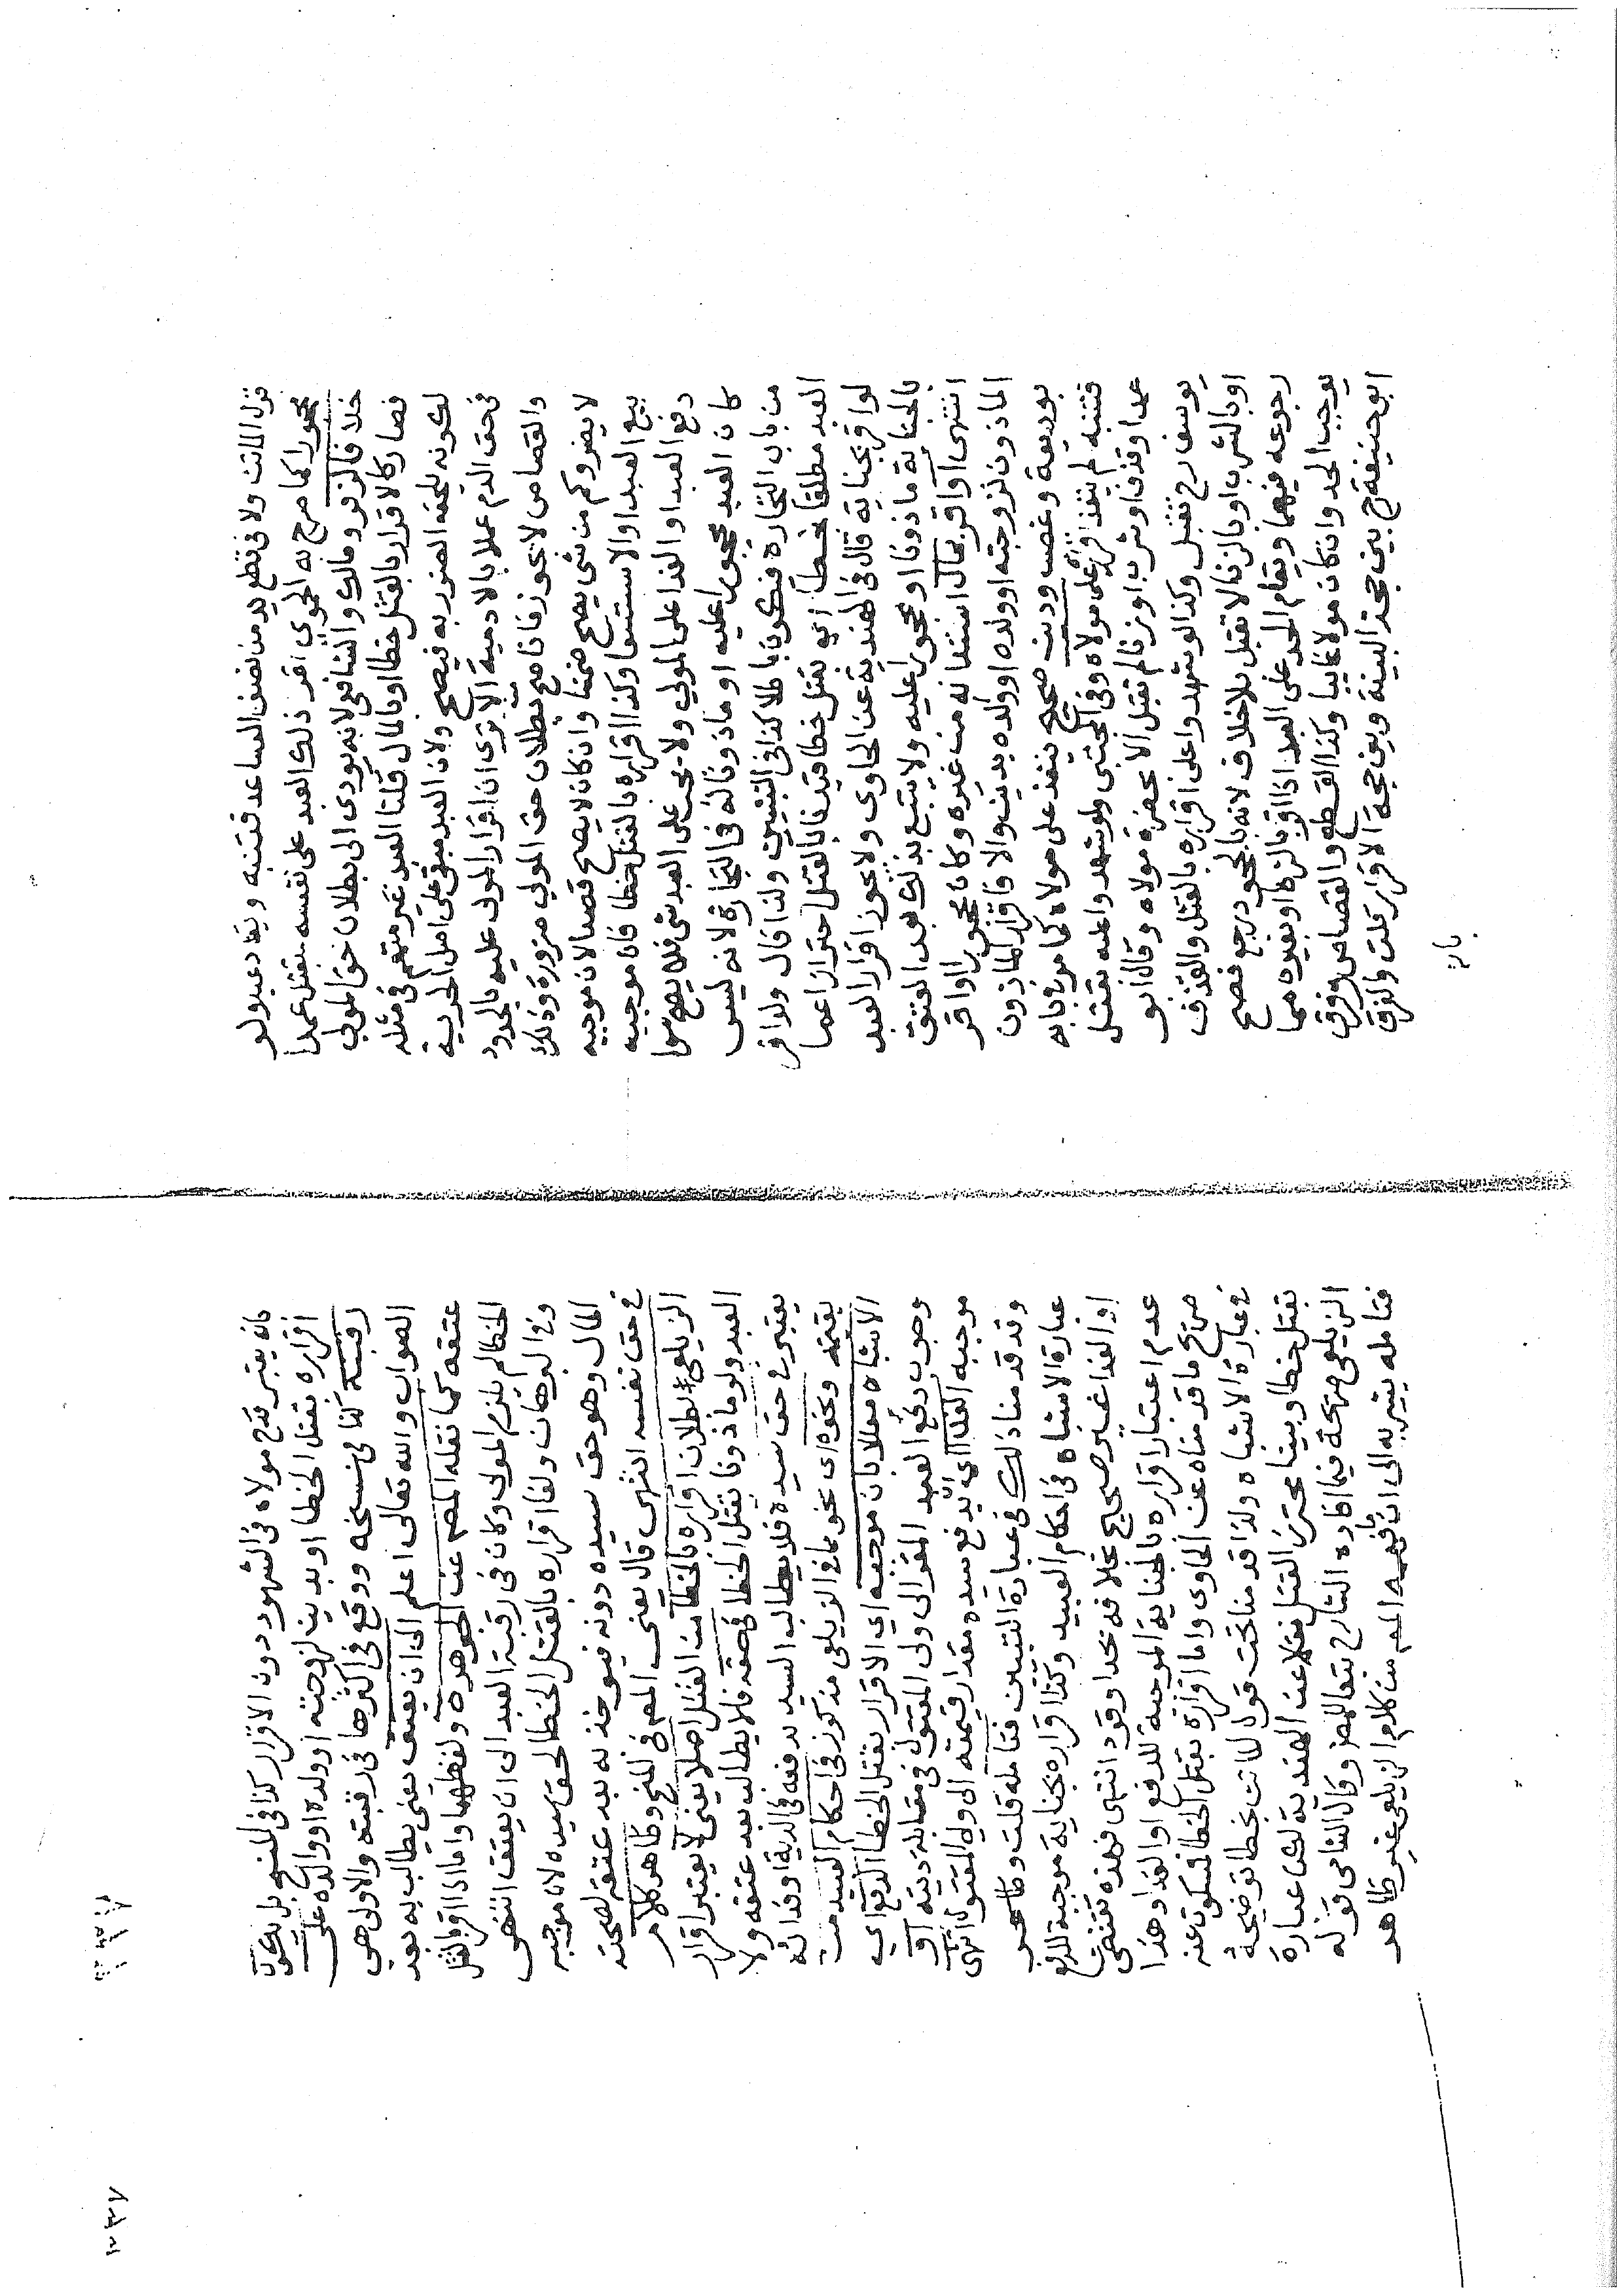 قول الماتن ولا في قطع يد من نصف الساعد فتنبه ويقاد عبد ولو
محجورا كما صرح به الحموي اقر ذلك العبد على نفسه بقتل عمدا
خلافا لزفر ومالك والشافعي لانه يودي الى بطلان حق المولى
فصار كالاقرار بالقتل خطا او بالمال قلنا العبد غير متهم في مثله
لكونه يلحقه الضرر به فيصح ولان العبد مبقى على اصل الحرية
في حق الدم عملا بالادمية الا ترى ان اقرار المولى عليه بالحدود
والقصاص لا يجوز فاذا صح بطلان حق المولى ضرورة وذلك
لا يضر وكم من شي يصح ضمنا وان كان لا يصح قصدا لان موجبه
بيع العبد او الاستسعا وكذا اقراره بالقتل خطا فان موجبه
دفع العبد او الفدا على المولى ولا يجب على العبد شي فلا يصح سوا
كان العبد محجورا عليه او ماذونا له في التجارة لانه ليس
من باب التجارة فيكون باطلا كذا في التبيين ولذا قال ولو اقر
العبد مطلقا بخطا اي بقتل خطا قيدنا بالقتل احترازا عما
لو اقر بجناية قال في الهندية عن الحاوي ولا يجوز اقرار العبد
بالجناية ماذونا او محجورا عليه ولا يتبع بذلك بعد العتق
انتهى او اقر بمال استثنا به من غيره وكان محجورا او اقر
الماذون لزوجته او ولده او والده بدين والا فاقرار الماذون
بوديعة وغصب ودين صحيح ينفذ على مولاه كما مر في بابه
فتنبه لم ينفذ اقراره على مولاه وفي المجتبى ولو شهدوا عليه بقتل
عمدا وقذف او شرب او زنا لم تقبل الا بحضرة مولاه وقال ابو
يوسف رح تقبل وكذا لو شهدوا على اقراره بالقتل والقذف
او بالشرب او بالزنا لا تقبل بلا خلاف لانه بالجحود رجع فصح
رجوعه فيهما ويقام الحد على العبد اذا اقر بالزنا او بغيره مما
يوجب الحد وان كان مولاه غايبا وكذا القطع والقصاص وفرق
ابو حنيفة رح بين حجة البينة وبين حجة الاقرار قلت والفرق
بانه
بانه يعتبر قدح مولاه في الشهود دون الاقرار كذا في المنح بل يكون
اقراره بقتل الخطا او بدين لزوجته او ولده او والده على
رقبته كذا في نسخه ووقع في اكثرها في رقبته والاولى هي
الصواب والله تعالى اعلم الى ان يعتق يعني يطالب به بعد
عتقه كما نقله المص عن الجوهرة ولفظها واما اذا اقر بالقتل
الخطا لم يلزم المولى وكان في رقبة العبد الى ان يعتق انتهى
وفي البرهان ولغا اقراره بالقتل الخطا لحق سيده لان موجبه
المال وهو حق سيده دونه فيوخذ به بعد عتقه لصحته
في حق نفسه انتهى قال يعني المص في المنح وظاهر كلام
الزيلعي بطلان اقراره بالخطا من القتل اصلا يعني لا يعتبر اقرار
العبد ولو ماذونا بقتل الخطا في حقه فلا يطالب بعد عتقه ولا
يعتبر في حق سيده فلا يطالب السيد بدفعه في الدية او فدائه
بقيمته ونحوه اي نحو ما في الزيلعي مذكور في احكام العبيد من
الاشباه معللا بان موجبه اي الاقرار بقتل الخطا الدفع اي
وجوب دفع العبد المقر الى ولى المقتول في مقابلة ديته او
موجبه الفدا اي يدفع سيده مقدار قيمته الى ولى المقتول انتهى
وقد قدمنا ذلك في عبارة التبيين فتامله قلت وظاهر
عبارة الاشباه في احكام العبيد وكذا اقراره بجناية موجبة للدفع
او الفدا غير صحيح بخلافه بحد او قود انتهى فهذه تقتضي
عدم اعتبار اقراره بالجناية الموجبة للدفع او الفدا وهذا
صريح ما قدمناه عن الحاوى واما اقراره بقتل الخطا فمسكوت عنه
في عبارة الاشباه ولذا قدمنا تحت قول الماتن بخطا توضيحه
بقتل خطا وبينا محترز القتل نقلا عن الهندية لكن عبارة
الزيلعي صريحة فيما افاده الشارح تبعا للمص وقال الشامي قوله
فتامله يشير به الى ان ما فهمه المص من كلام الزيلعي غير ظاهر